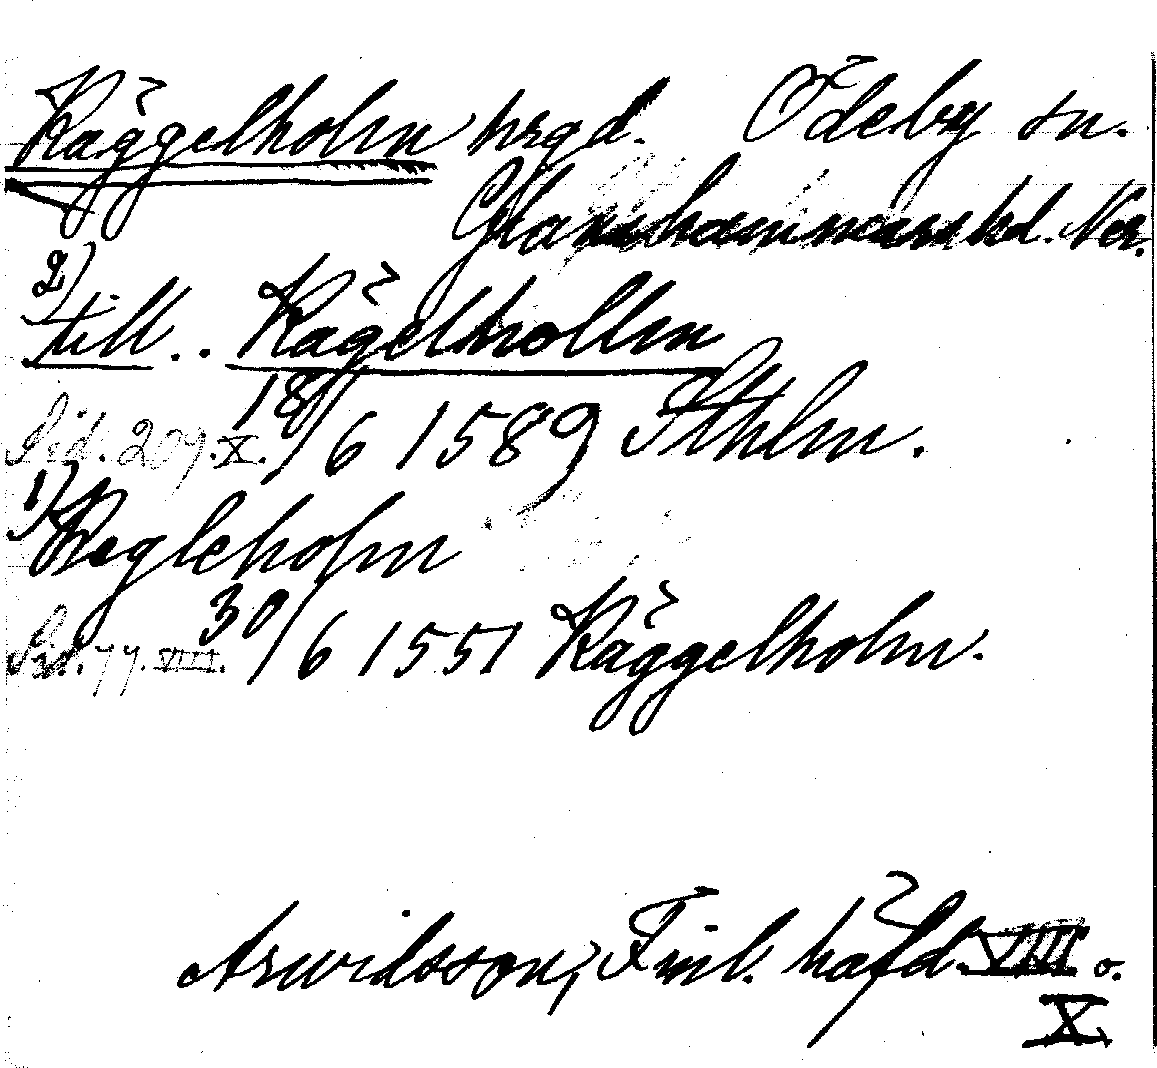 Käggelholm hrgd. Ödeby sn.
Glanshammars hd. Ner.
2)
till.. Kägelhollm
Sid. 209. X. 18/6 1589 Sthlm.
1)
Kegleholm
Sid. 77. VIII. 30/6 1551 Käggelholm.
Arwidsson, Finl. häfd. VIII o.
X.